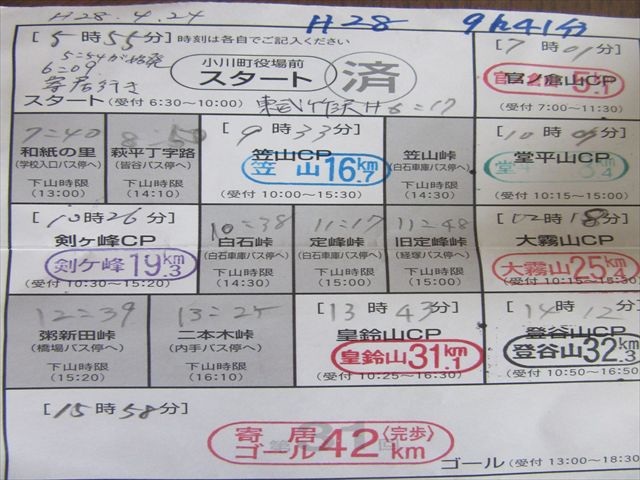 H28.4.24
H28 9h41分
[5時55分] 時刻は各自でご記入ください
6=09
寄居行き
小川町役場前
スタート
済
スタート (受付 6:30～10:00) 東武竹沢 6=17
[7時01分]
官ノ倉山CP
(受付 7:00～11:30)
7=40
和紙の里
(学校入口バス停へ)
下山時限
(13:00)
8=50
萩平丁字路
(皆谷バス停へ)
下山時限
(14:10)
[9時33分]
笠山CP
笠山16.7km
(受付 10:00～15:30)
笠山峠
(白石車庫バス停へ)
下山時限
(14:30)
[10時05分]
堂平山CP
(受付 10:15～15:00)
[10時26分]
剣ヶ峰CP
剣ケ峰19.3km
(受付 10:30～15:20)
10=38
白石峠
(白石車庫バス停へ)
下山時限
(14:30)
11=17
定峰峠
(白石車庫バス停へ)
下山時限
(15:00)
11=48
旧定峰峠
(経塚バス停へ)
下山時限
(15:00)
[12時18分]
大霧山CP
大霧山25.4km
12=39
粥新田峠
(橋場バス停へ)
下山時限
(15:20)
13=25
二本木峠
(内手バス停へ)
下山時限
(16:10)
[13時43分]
皇鈴山CP
皇鈴山31.1km
(受付 10:25～16:30)
[14時12分]
登谷山CP
登谷山32.3km
(受付 10:50～16:50)
[15時58分]
寄居
ゴール42km〈完歩〉
ゴール (受付 13:00～18:30